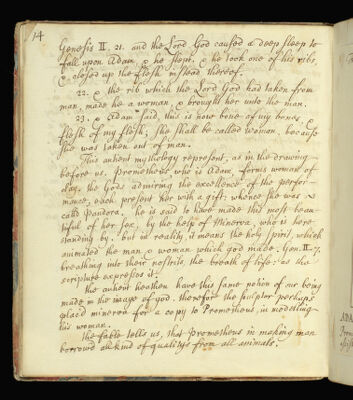 14
Genesis II. 21. and the Lord God caused a deep sleep to
fall upon Adam, & he slept. & he took one of his ribs,
& closed up the flesh instead thereof.
22. & the rib which the Lord God had taken from
man, made he a woman, & brought her unto the man.
23. & Adam said, this is now bone of my bones, &
flesh of my flesh; she shall be called woman, because
she was taken out of man.
This antient mythology represent, as in the drawing
before us. Prometheus who is Adam, forms woman of
clay. the Gods admiring the excellence of the perfor-
mance, each present her with a gift: whence she was
calld pandora. he is said to have made this most beau-
tiful of her sex, by the help of Minerva, who is here
standing by. but in reality, it means the holy spirit, which
animated the man & woman which god made. Gen. II. 7.
breathing into their nostrils, the breath of life: as the
scripture expresses it.
the antient heathen have this same notion of our being
made in the image of god. therefore the sculptor perhaps
plac'd minerva for a copy to Prometheus, in modelling
his woman.
the fable tells us, that prometheus in making man
borrowd all kind of qualitys from all animals.